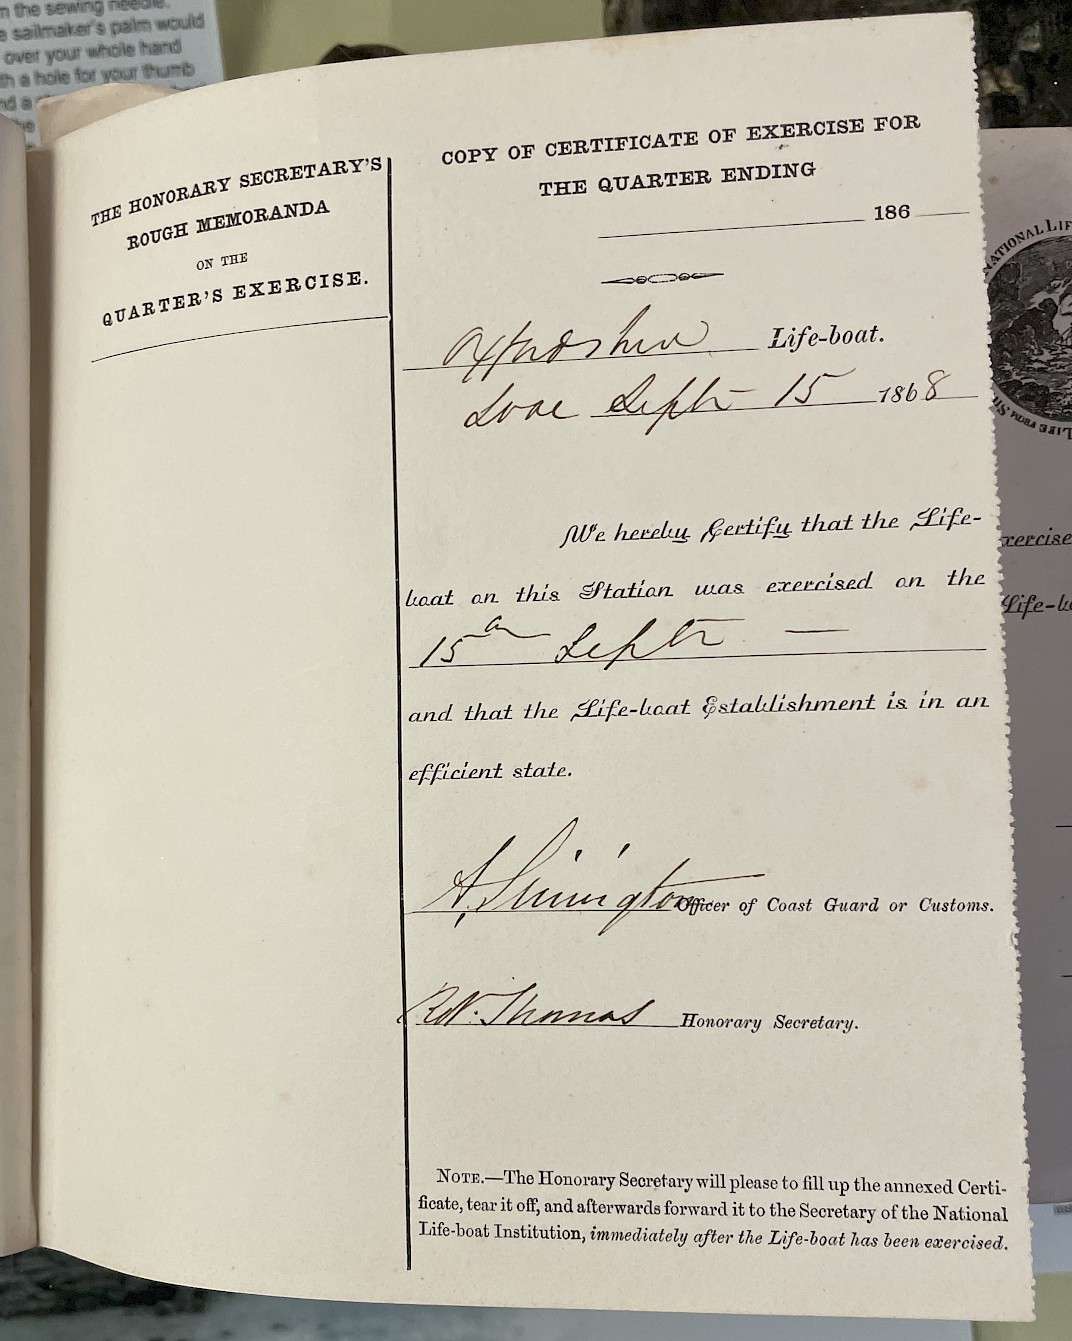 n the sewing needle.
e sailmaker's palm would
over your whole hand
th a hole for your thumb
nd a
THE HONORARY SECRETARY'S
ROUGH MEMORANDA
ON THE
QUARTER'S EXERCISE.
COPY OF CERTIFICATE OF EXERCISE FOR
THE QUARTER ENDING
186
Oxfordshire Life-boat.
Looe Septr 15 1868
We hereby Certify that the Life-
boat on this Station was exercised on the
15th Septr —
and that the Life-boat Establishment is in an
efficient state.
Officer of Coast Guard or Customs.
Thomas Honorary Secretary.
NOTE.—The Honorary Secretary will please to fill up the annexed Certi-
ficate, tear it off, and afterwards forward it to the Secretary of the National
Life-boat Institution, immediately after the Life-boat has been exercised.
NATIONAL LIF
LIFE FROM SH
xercise
Life-bo